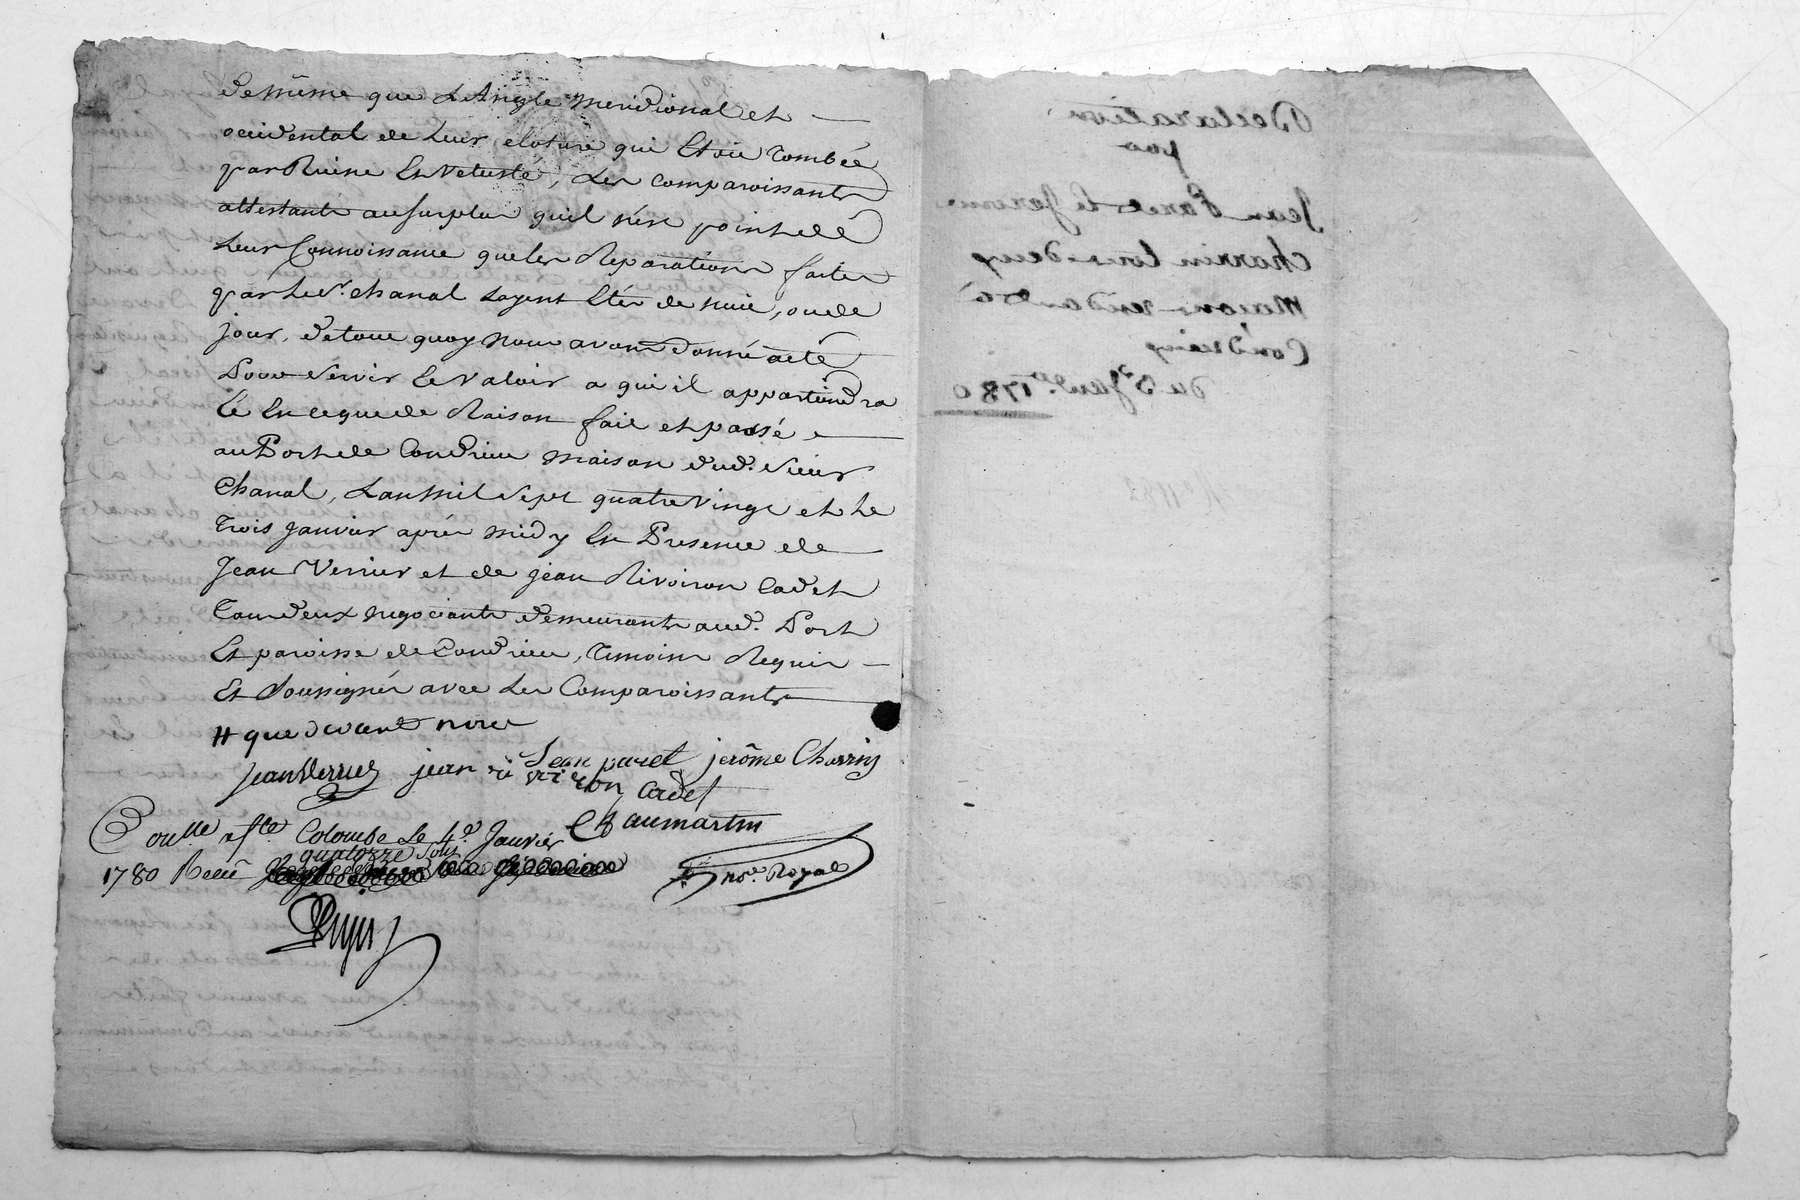 de même que L'Angle meridional et
occidental de Leur cloture qui Etoit Tombée
par Ruine Et Vetusté, Les comparoissants
attestants au surplus qu'il n'est point de
Leur Connoissance que les Reparations faites
par Le Sr. chanal Layent Etés de nuit, ou de
jour, de tout quoy nous avons donné acte
Pour servir Et valoir a qui il appartiendra
Et En ce que de Raison fait et passé
au Port de Condrieu maison dud. sieur
Chanal, L'an mil sept quatre vingt et Le
Trois janvier après midy En Presence de
Jean Verrier et de jean Rivoiron Cadet
Tous deux negociants demeurants aud. Port
Et paroisse de Condrieu, Temoins Requis
Et Soussignés avec Les Comparoissants
# que devant nore
Jean Verrier jean rivoiron cadet Jean paret jerôme Charrin
Chaumartin
nore. Royal
Conlle a Ste Colombe Le 4e. Janvier
1780 Receu quatorze sols
Declaration
par
Jean Paret & Jerome
Charrin tous deux
Macons residants à
Condrieu
du 3e. Janvr. 1780